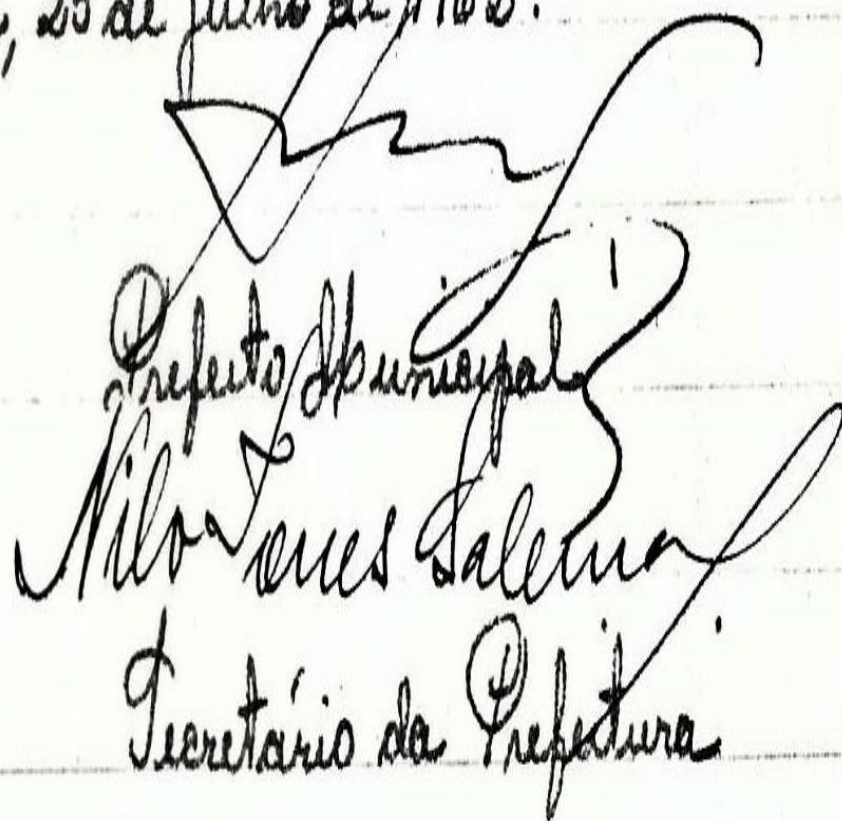 de julho de
Prefeito Municipal
Nilo Torres Salema
Secretário da Prefeitura